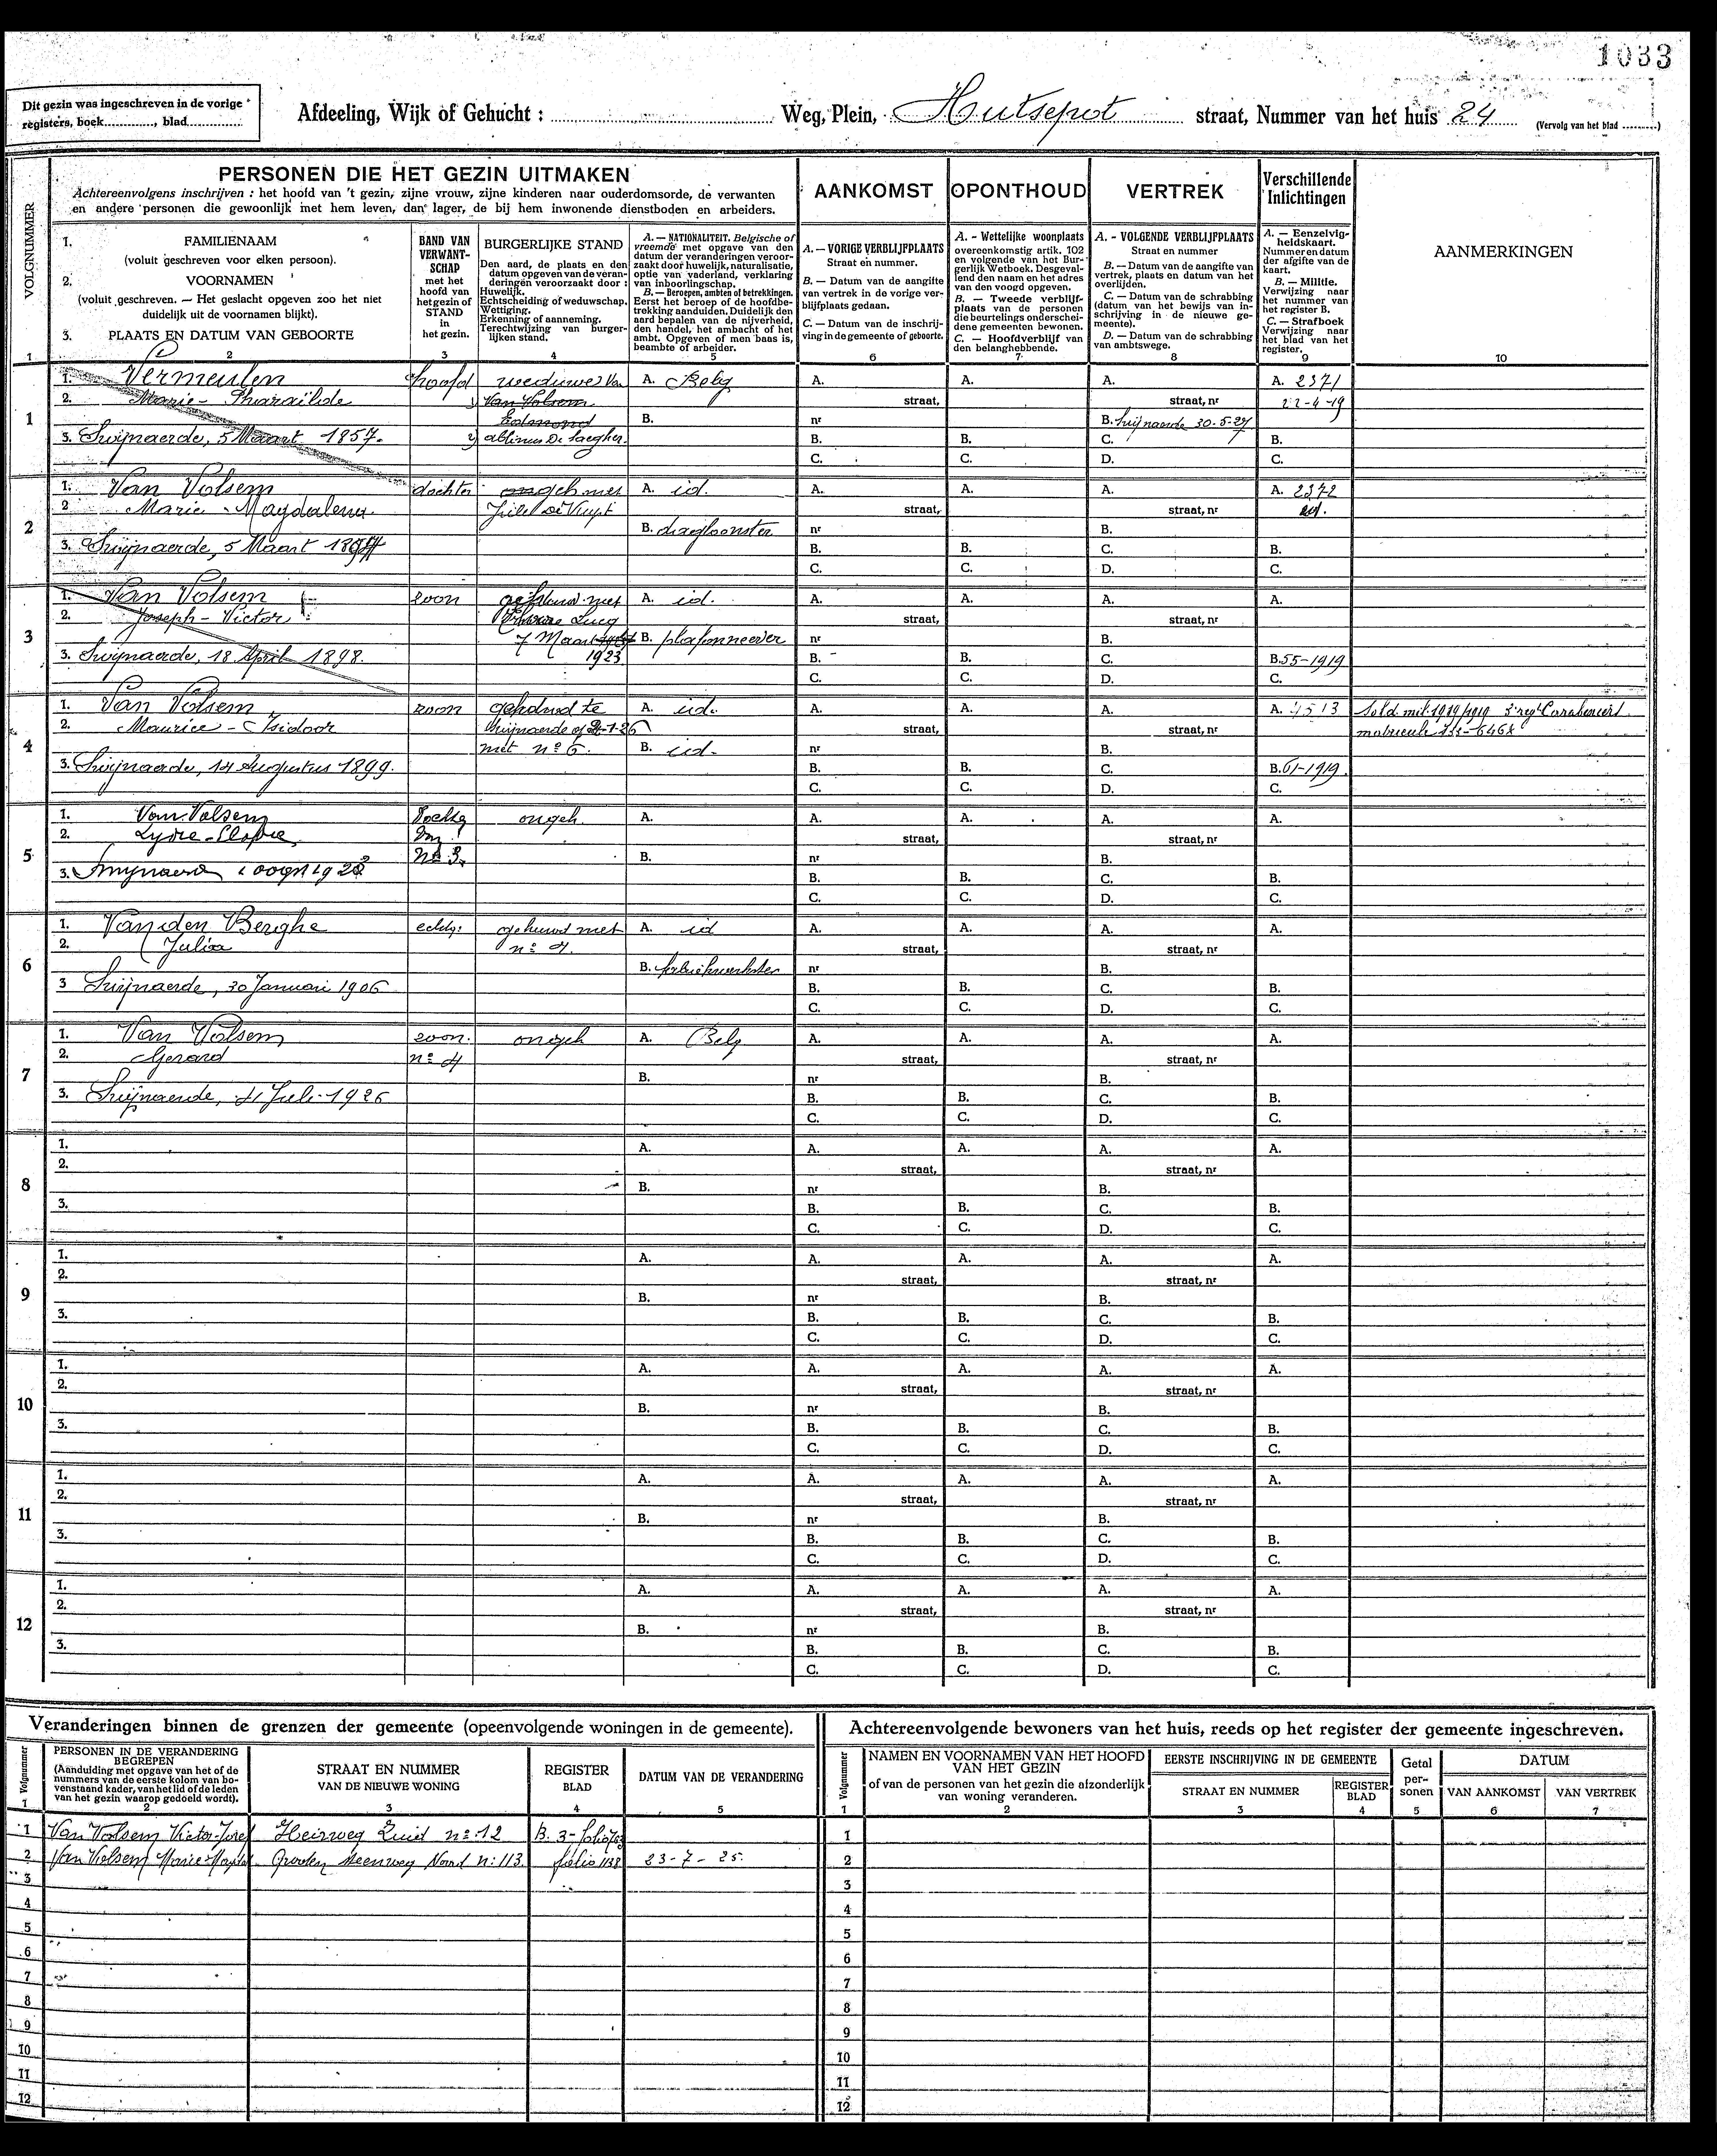 1033
Dit gezin was ingeschreven in de vorige
registers, boek............, blad..............
Afdeeling, Wijk of Gehucht : Weg, Plein, Hutsepot straat, Nummer van het huis 24 (Vervolg van het blad ..........)
PERSONEN DIE HET GEZIN UITMAKEN
Achtereenvolgens inschrijven : het hoofd van 't gezin, zijne vrouw, zijne kinderen naar ouderdomsorde, de verwanten
en andere personen die gewoonlijk met hem leven, dan lager, de bij hem inwonende dienstboden en arbeiders.
AANKOMST
OPONTHOUD
VERTREK
Verschillende
Inlichtingen
AANMERKINGEN
VOLGNUMMER
1. FAMILIENAAM
(voluit geschreven voor elken persoon).
2. VOORNAMEN
(voluit geschreven. — Het geslacht opgeven zoo het niet
duidelijk uit de voornamen blijkt).
3. PLAATS EN DATUM VAN GEBOORTE
BAND VAN
VERWANT-
SCHAP
met het
hoofd van
het gezin of
STAND
in
het gezin.
BURGERLIJKE STAND
Den aard, de plaats en den
datum opgeven van de veran-
deringen veroorzaakt door :
Huwelijk.
Echtscheiding of weduwschap.
Wettiging.
Erkenning of aanneming.
Terechtwijzing van burger-
lijken stand.
A. — NATIONALITEIT. Belgische of
vreemde met opgave van den
datum der veranderingen veroor-
zaakt door huwelijk, naturalisatie,
optie van vaderland, verklaring
van inboorlingschap.
B. — Beroepen, ambten of betrekkingen.
Eerst het beroep of de hoofdbe-
trekking aanduiden. Duidelijk den
aard bepalen van de nijverheid,
den handel, het ambacht of het
ambt. Opgeven of men baas is,
beambte of arbeider.
A. — VORIGE VERBLIJFPLAATS
Straat en nummer.
B. — Datum van de aangifte
van vertrek in de vorige ver-
blijfplaats gedaan.
C. — Datum van de inschrij-
ving in de gemeente of geboorte.
A. - Wettelijke woonplaats
overeenkomstig artik. 102
en volgende van het Bur-
gerlijk Wetboek. Desgeval-
lend den naam en het adres
van den voogd opgeven.
B. — Tweede verblijf-
plaats van de personen
die beurtelings onderschei-
dene gemeenten bewonen.
C. — Hoofdverblijf van
den belanghebbende.
A. - VOLGENDE VERBLIJFPLAATS
Straat en nummer
B. — Datum van de aangifte van
vertrek, plaats en datum van het
overlijden.
C. — Datum van de schrabbing
(datum van het bewijs van in-
schrijving in de nieuwe ge-
meente).
D. — Datum van de schrabbing
van ambtswege.
A. — Eenzelvig-
heidskaart.
Nummer en datum
der afgifte van de
kaart.
B. — Militie.
Verwijzing naar
het nummer van
het register B.
C. — Strafboek
Verwijzing naar
het blad van het
register.
1 2 3 4 5 6 7 8 9 10
1
1. Vermeulen hoofd weduwe van A. Belg A. A. A. A. 2371
2. Marie - Pharaïlde 1) Van Volsem straat, straat, nr 22-4-19
Edmond B. nr B. Swijnaerde 30-5-27
3. Swijnaerde, 5 Maart 1857. 2) De Saegher B. B. C. B.
C. C. D. C.
2
1. Van Volsem dochter ongeh met A. id. A. A. A. A. 2372
2 Marie - Magdalena straat, straat, nr id.
B. dagloonster nr B.
3. Swijnaerde, 5 Maart B. B. C. B.
C. C. D. C.
3
1. Van Volsem zoon gehuwd met A. id. A. A. A. A.
2. Joseph - Victor straat, straat, nr
7 Maart B. plafonneerder nr B.
3. Swijnaerde, 18 April 1898. 1923 B. B. C. B. 55-1919
C. C. D. C.
4
1. Van Volsem zoon gehuwd te A. id. A. A. A. A. 4513 Sold. mil. 1919
2. Maurice - Isidoor Swijnaerde straat, straat, nr
met n° 6. B. id. nr B.
3. Swijnaerde, 14 Augustus 1899. B. B. C. B. 61-1919.
C. C. D. C.
5
1. Van Volsem ongeh. A. A. A. A. A.
2. straat, straat, nr
n° 3. B. nr B.
3. B. B. C. B.
C. C. D. C.
6
1. Van den Berghe echtg: gehuwd met A. id A. A. A. A.
2. Julia n° 4. straat, straat, nr
B. fabriekwerkster nr B.
3 Swijnaerde, 30 Januari 1906 B. B. C. B.
C. C. D. C.
7
1. Van Volsem zoon. ongeh A. Belg A. A. A. A.
2. Gerard n° 4 straat, straat, nr
B. nr B.
3. Swijnaerde, 4 Juli 1926 B. B. C. B.
C. C. D. C.
8
1. A. A. A. A. A.
2. straat, straat, nr
B. nr B.
3. B. B. C. B.
C. C. D. C.
9
1. A. A. A. A. A.
2. straat, straat, nr
B. nr B.
3. B. B. C. B.
C. C. D. C.
10
1. A. A. A. A. A.
2. straat, straat, nr
B. nr B.
3. B. B. C. B.
C. C. D. C.
11
1. A. A. A. A. A.
2. straat, straat, nr
B. nr B.
3. B. B. C. B.
C. C. D. C.
12
1. A. A. A. A. A.
2. straat, straat, nr
B. nr B.
3. B. B. C. B.
C. C. D. C.
Veranderingen binnen de grenzen der gemeente (opeenvolgende woningen in de gemeente).
Volgnummer
PERSONEN IN DE VERANDERING
BEGREPEN
(Aanduiding met opgave van het of de
nummers van de eerste kolom van bo-
venstaand kader, van het lid of de leden
van het gezin waarop gedoeld wordt).
STRAAT EN NUMMER
VAN DE NIEUWE WONING
REGISTER
BLAD
DATUM VAN DE VERANDERING
1 2 3 4 5
1 Van Volsem Victor-Jozef Heirweg Zuid n° 12 B. 3 - folio
2 Van Volsem Marie-Magdal. Grooten steenweg Noord n: 113. folio 1138 23-7-25.
3
4
5
6
7
8
9
10
11
12
Achtereenvolgende bewoners van het huis, reeds op het register der gemeente ingeschreven.
Volgnummer
NAMEN EN VOORNAMEN VAN HET HOOFD
VAN HET GEZIN
of van de personen van het gezin die afzonderlijk
van woning veranderen.
EERSTE INSCHRIJVING IN DE GEMEENTE
STRAAT EN NUMMER
REGISTER
BLAD
Getal
per-
sonen
DATUM
VAN AANKOMST
VAN VERTREK
1 2 3 4 5 6 7
1
2
3
4
5
6
7
8
9
10
11
12